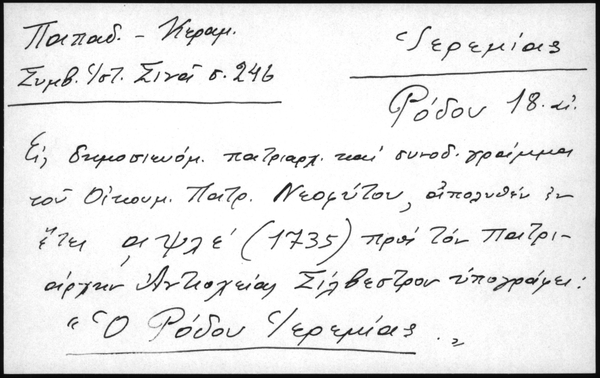 Παπαδ. - Κεραμ.
Συμβ. Ἱστ. Σινᾶ σ. 246
Ἱερεμίας
Ρόδου 18. αἰ.
Εἰς δημοσιευόμ. πατριαρχ. καί συνοδ. γράμμα
τοῦ Οἰκουμ. Πατρ. Νεοφύτου, ἀπολυθέν ἐν
ἔτει ͵αψλέ (1735) πρός τόν Πατρι-
άρχην Ἀντιοχείας Σίλβεστρον ὑπογράφει:
"Ὁ Ρόδου Ἱερεμίας."